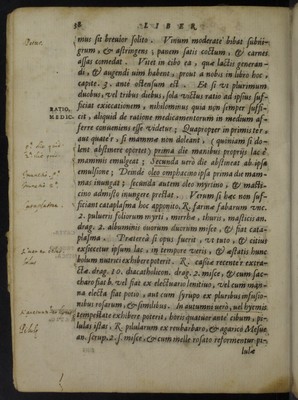 38 LIBER
mus sit brevior solito. Vinum moderatè bibat subni-
grum, & astringens; panem satis coctum, & carnes
assas comedat. Vitet in cibo ea, quæ lactis generan-
di, & augendi vim habent, prout à nobis in libro hoc,
capite. 3. antè ostensum est. Et si ut plurimum
duobus, vel tribus diebus, sola victus ratio ad ipsius suf-
RATIO. ficiat exiccationem, nihilominus quia non semper suffi-
MEDIC. cit, aliquid de ratione medicamentorum in medium af-
ferre conveniens esse videtur; Quapropter in primis ter,
aut quater, si mammæ non doleant, (quoniam si do-
lent abstinere oportet) prima die manibus propriis lac è
mammis emulgeat; Secunda verò die abstineat ab ipsa
emulsione; Deinde oleo omphacino ipsa prima die mam-
mas inungat; secunda autem oleo myrtino, & masti-
cino admisto inungere præstat. Verum si hæc non suf-
ficiant cataplasma hoc apponito. R. farinæ fabarum unc.
2. pulveris foliorum myrti, myrrhæ, thuris, mastices an.
drag. 2. albuminis ovorum duorum misce, & fiat cata-
plasma. Præterea si opus fuerit, ut tuto, & citius
exsiccetur ipsum lac, in tempore veris, & æstatis hunc
bolum nutrici exhibere poterit. R. cassiæ recenter extra-
ctæ. drag. 10. diacatholicon. drag. 2. misce, & cum sac-
charo fiat b. vel fiat ex electuario lenitivo, vel cum man-
na electa fiat potio, aut cum syrupo ex pluribus infusio-
nibus rosarum, & similibus. In autumno verò, vel hyemis
tempestate exhibere poterit, horis quatuor antè cibum, pi-
lulas istas, R. pilularum ex reubarbaro, & agarico Mesue
an. scrup. 2. s. misce, & cum melle rosato reformentur pi-
lulæ